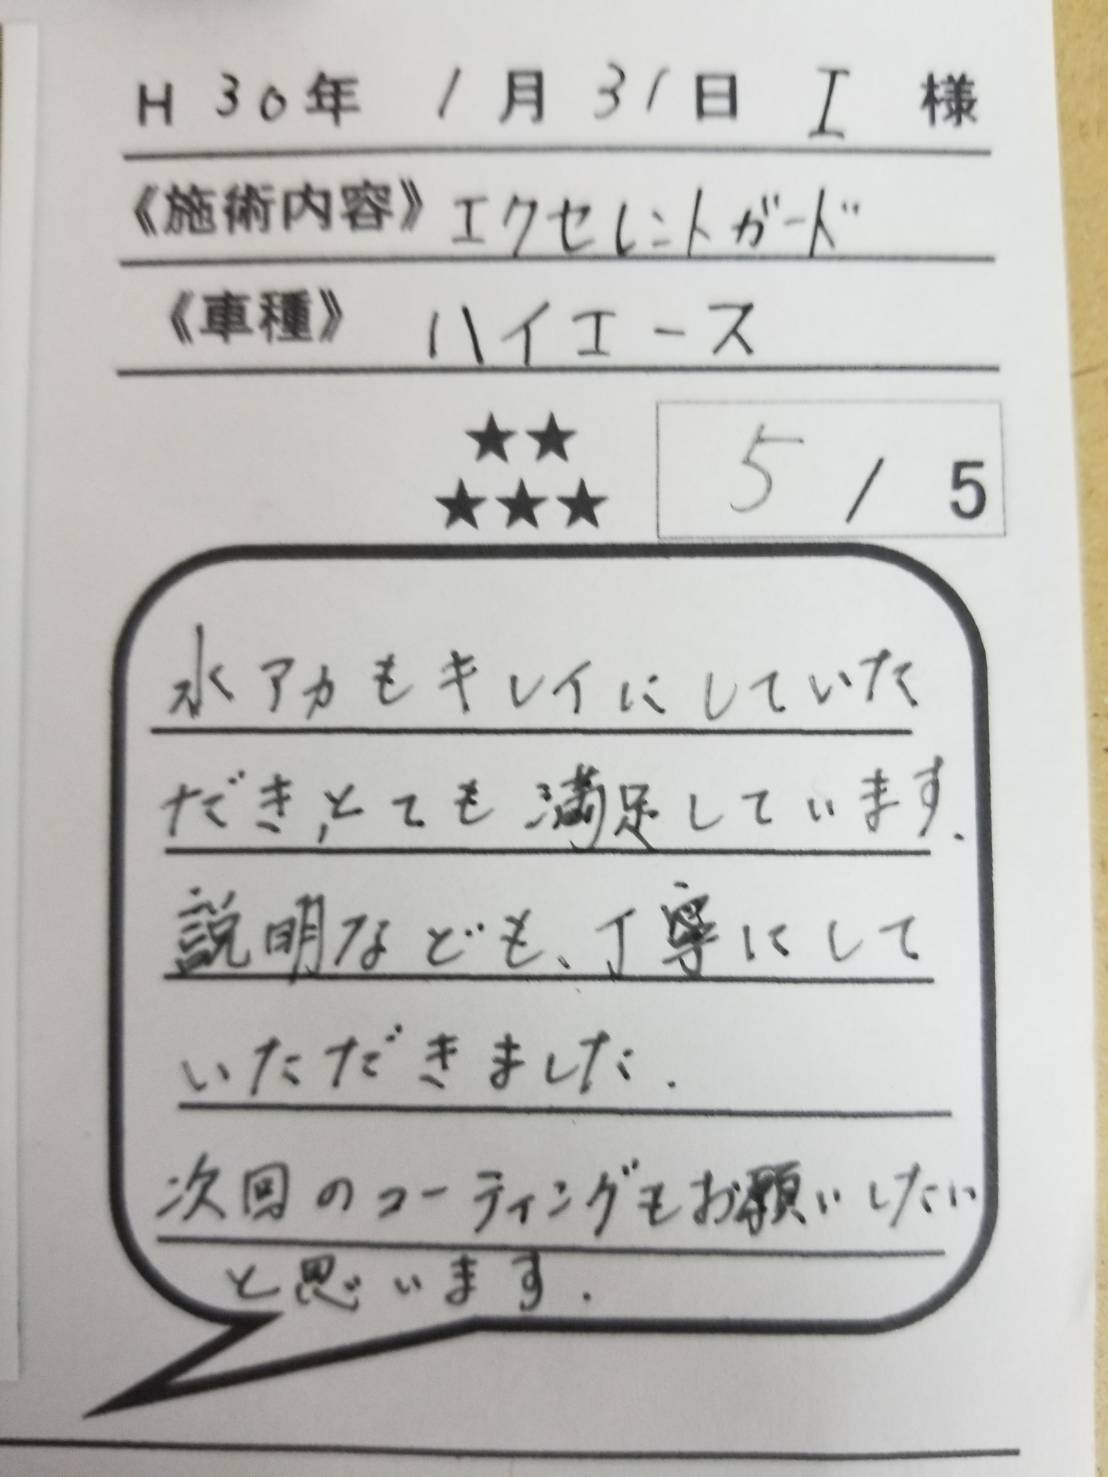 H 30年 1月 31日 I 様
《施術内容》エクセレントガード
《車種》ハイエース
★★
★★★
5 / 5
水アカもキレイにしていた
だき、とても満足しています.
説明なども、丁寧にして
いただきました.
次回のコーティングもお願いしたい
と思います.